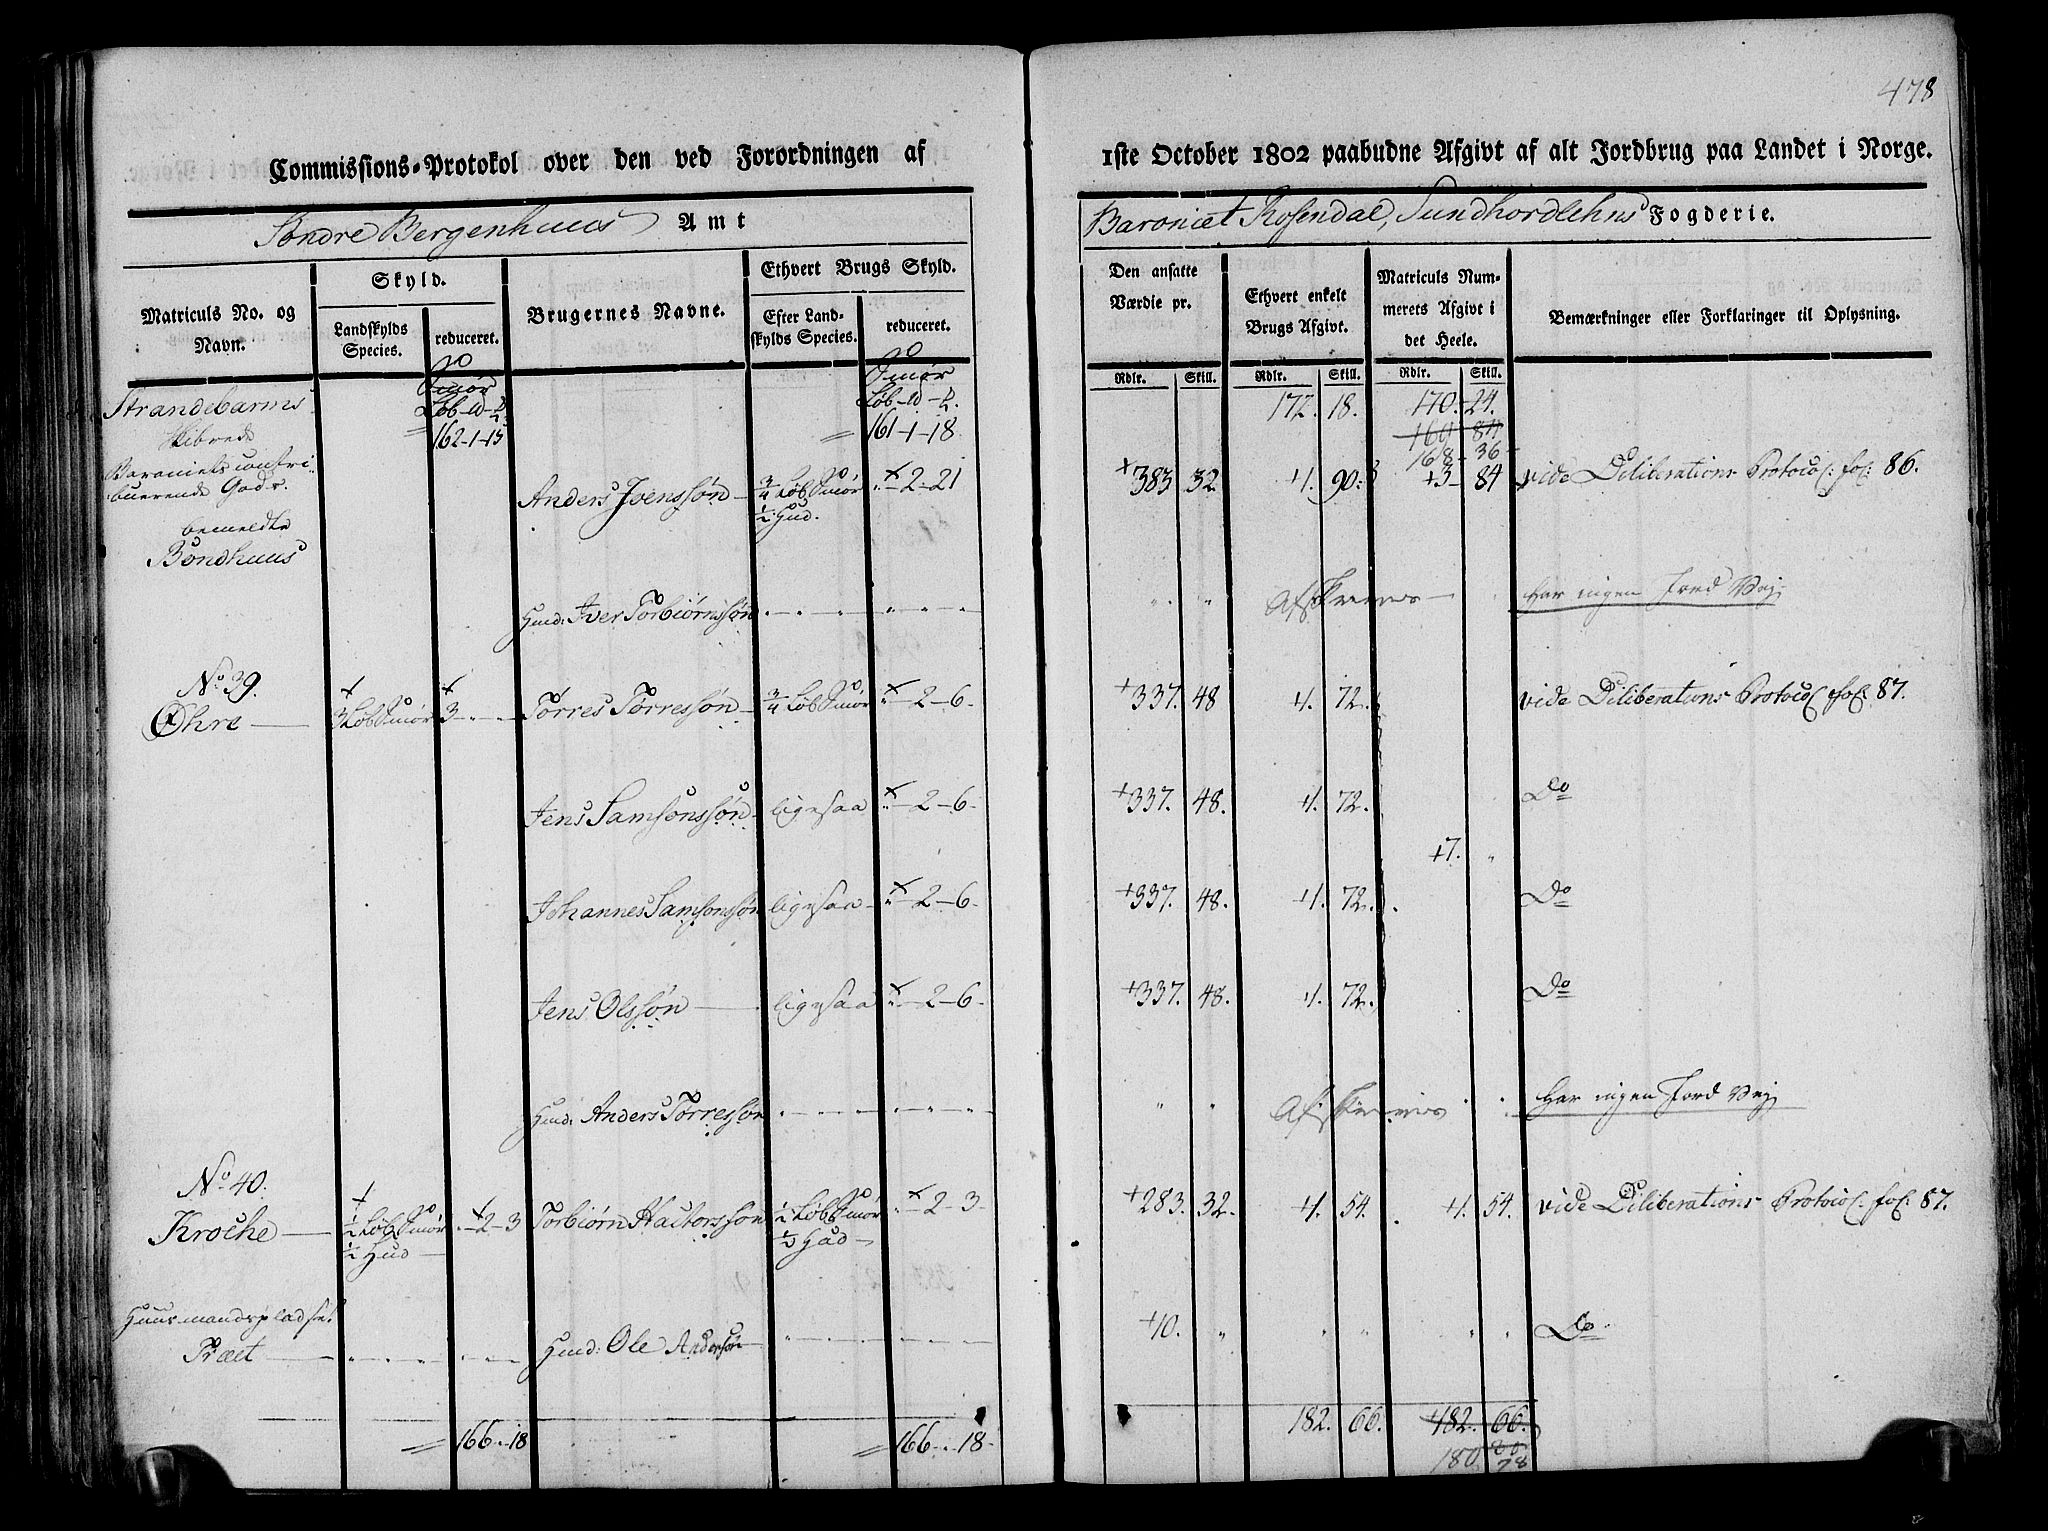 478
Commissions-Protokol over den ved Forordningen af
1ste October 1802 paabudne Afgivt af alt Jordbrug paa Landet i Norge.
Søndre Bergenhuus Amt
Baroniet Rosendal, Sundhordlehns Fogderie.
Matriculs No. og Navn.
Skyld.
Landskylds Species.
reduceret.
Brugernes Navne.
Ethvert Brugs Skyld.
Efter Landskylds Species.
reduceret.
Den ansatte Værdie pr.
Ethvert enkelt Brugs Afgivt.
Matriculs Nummerets Afgivt i det Heele.
Bemærkninger eller Forklaringer til Oplysning.
Rdlr. Skill. Rdlr. Skill. Rdlr. Skill.
Strandebarms Skibrede
Smør Smør
162-1-15 161-1-18
172. 18. 170. 24.
169 84
168 - 36
Baroniets contribuerende Gods.
bemeldte
Bondhuus
Anders Ivenssøn 3/4 Løb Smør 1/2 Hud. " - 2 - 21 383 32 1. 90. 3 84 vide Deliberations Protocol: fol: 86.
Huusmd: Iver Torbiørnssøn " " Afskrives Har ingen Jord Vej
No 39.
Øhre 3 Løb Smør 3 - " - " Torres Torressøn 3/4 Løb Smør " - 2 - 6 337. 48 1. 72. vide Deliberations Protocol fol: 87.
Jens Samsonssøn ligesaa " - 2 - 6 337. 48. 1. 72. Do
7. "
Johannes Samsonssøn ligesaa " - 2 - 6 337. 48. 1. 72. Do
Jens Olssøn ligesaa " - 2 - 6 337. 48. 1. 72. Do
Anders Torressøn " " Afskrives Har ingen Jord Vej
No 40.
Kroche 1/2 Løb Smør 1/2 Hud " - 2 - 3 Torbiørn Hactorssøn 1/2 Løb Smør 1/2 Hud " - 2 - 3 283. 32. 1. 54. 1. 54. vide Deliberations Protocol: fol: 87.
Huusmandspladset
Træet Ole Anderssøn 10. " " " " " Do
166 - " - 18 166 - " - 18 182. 66. 182. 66.
180 78